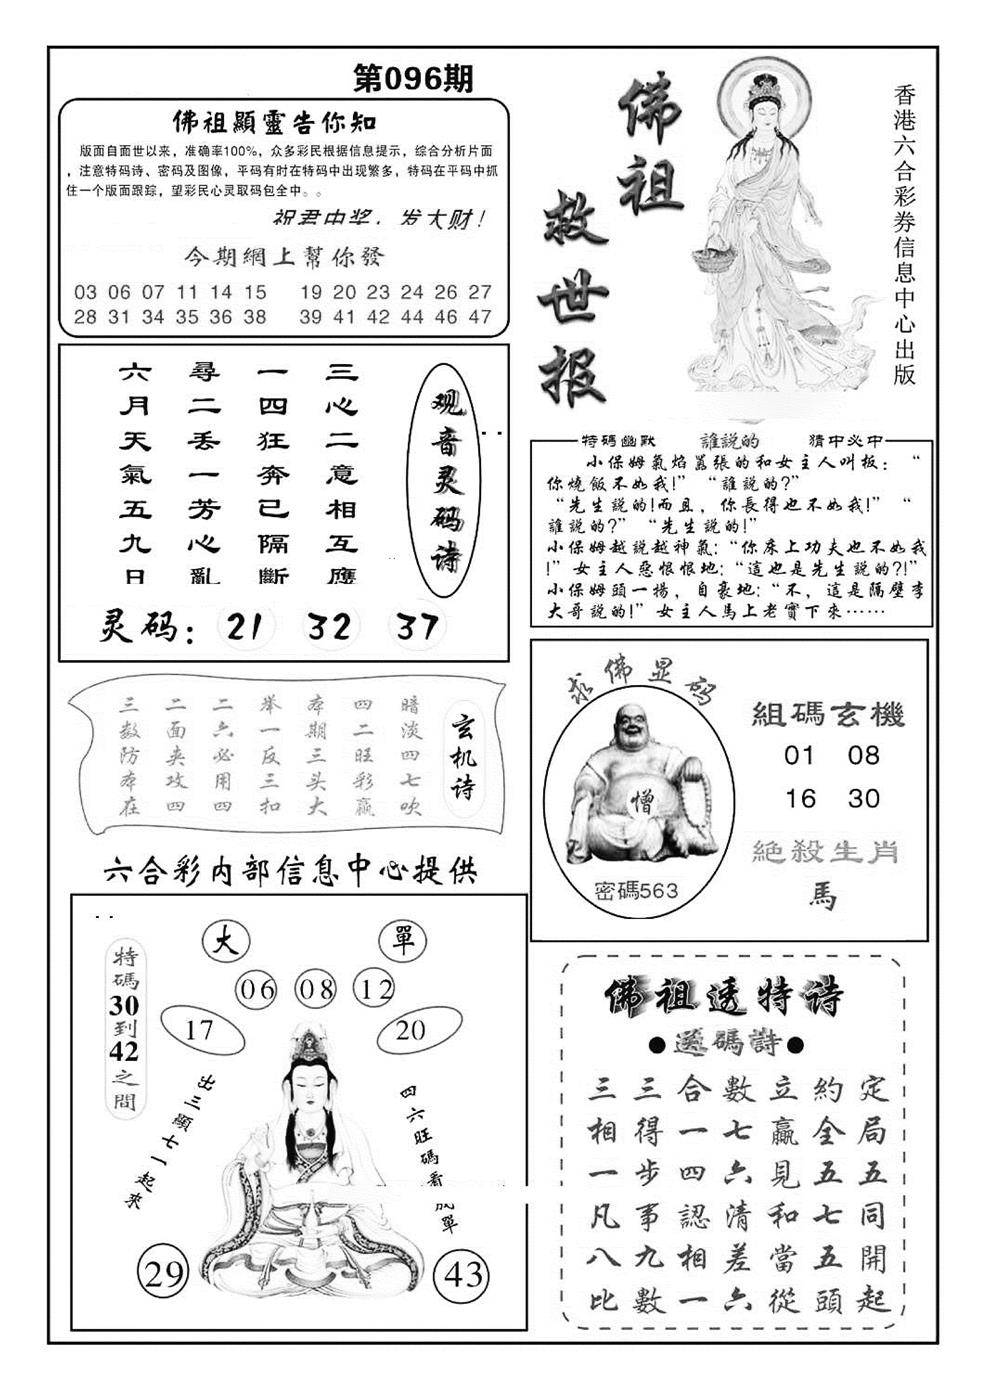 第096期
佛祖顯靈告你知
版面自面世以来，准确率100%，众多彩民根据信息提示，综合分析片面
，注意特码诗、密码及图像，平码有时在特码中出现繁多，特码在平码中抓
住一个版面跟踪，望彩民心灵取码包全中。。
祝君中奖，发大财！
今期網上幫你發
03 06 07 11 14 15 19 20 23 24 26 27
28 31 34 35 36 38 39 41 42 44 46 47
佛祖
救世报
香港六合彩券信息中心出版
观音灵码诗
三心二意相互應
一四狂奔已隔斷
尋二丢一芳心亂
六月天氣五九日
灵码：21 32 37
特碼幽默 誰説的 猜中必中
小保姆氣焰囂張的和女主人叫板：“
你燒飯不如我!” “誰説的?”
“先生説的!而且，你長得也不如我!” “
誰説的?” “先生説的!”
小保姆越説越神氣:“你床上功夫也不如我
!” 女主人惡恨恨地:“這也是先生説的?!”
小保姆頭一揚，自豪地:“不，這是隔壁李
大哥説的!” 女主人馬上老實下來……
玄机诗
暗淡四七吹
四二旺彩赢
本期三头大
举一反三扣
二六必用四
二面夹攻四
三数防本在
六合彩内部信息中心提供
求佛显码
憎
密碼563
組碼玄機
01 08
16 30
絶殺生肖
馬
特碼30到42之間
大 單
06 08 12
17 20
出三顯七一起來
四六旺碼看
單
29 43
佛祖透特诗
●送碼詩●
三三合數立約定
相得一七贏全局
一步四六見五五
凡事認清和七同
八九相差當五開
比數一六從頭起